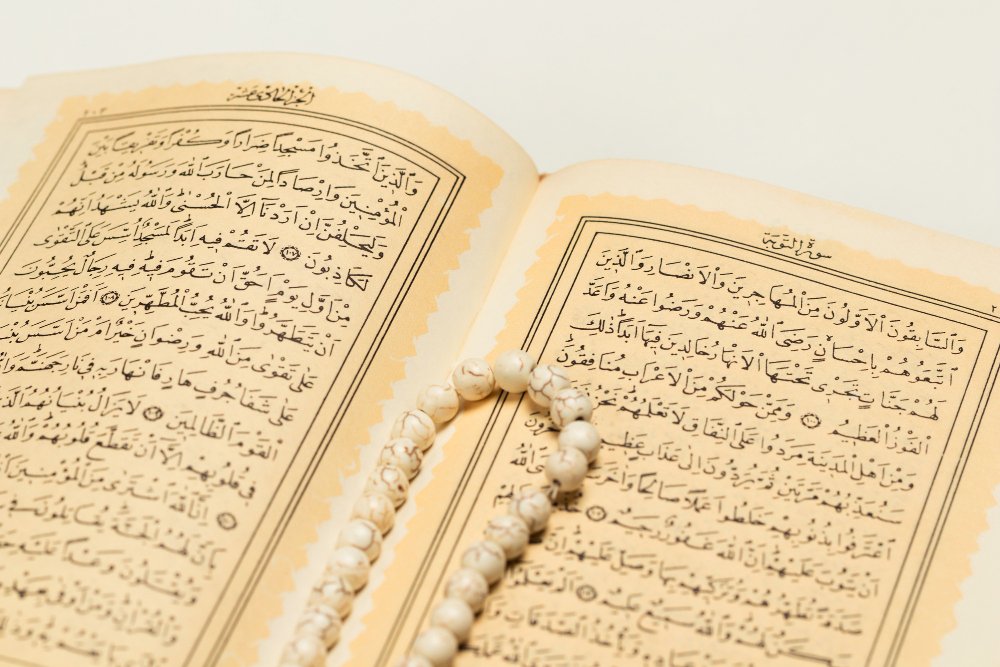 سورة التوبة
وَالسَّابِقُونَ الْاَوَّلُونَ مِنَ الْمُهَاجِرِينَ وَالْاَنْصَارِ وَالَّذِينَ
اتَّبَعُوهُمْ بِاِحْسَانٍ رَضِيَ اللّٰهُ عَنْهُمْ وَرَضُوا عَنْهُ وَاَعَدَّ
لَهُمْ جَنَّاتٍ تَجْرِي تَحْتَهَا الْاَنْهَارُ خَالِدِينَ فِيهَا اَبَدًا ذٰلِكَ
الْفَوْزُ الْعَظِيمُ ١٠٠ وَمِمَّنْ حَوْلَكُمْ مِنَ الْاَعْرَابِ مُنَافِقُونَ
وَمِنْ اَهْلِ الْمَدِينَةِ مَرَدُوا عَلَى النِّفَاقِ لَا تَعْلَمُهُمْ نَحْنُ
سَنُعَذِّبُهُمْ مَرَّتَيْنِ ثُمَّ يُرَدُّونَ اِلٰى عَذَابٍ عَظِيمٍ
اعْتَرَفُوا بِذُنُوبِهِمْ خَلَطُوا عَمَلًا صَالِحًا وَاٰخَرَ اللّٰهُ
اَنْ يَتُوبَ عَلَيْهِمْ اِنَّ اللّٰهَ غَفُورٌ رَحِيمٌ
صَدَقَةً تُطَهِّرُهُمْ وَتُزَكِّيهِمْ بِهَا وَصَلِّ عَلَيْهِمْ اِنَّ
سَكَنٌ لَهُمْ وَاللّٰهُ سَمِيعٌ عَلِيمٌ اَلَمْ يَعْلَمُوا
وَيَأْخُذُ الصَّدَقَاتِ
الجزء الحادي عشر
٢٠٣
وَالَّذِينَ اتَّخَذُوا مَسْجِدًا ضِرَارًا وَكُفْرًا وَتَفْرِيقًا بَيْنَ
الْمُؤْمِنِينَ وَاِرْصَادًا لِمَنْ حَارَبَ اللّٰهَ وَرَسُولَهُ مِنْ قَبْلُ
وَلَيَحْلِفُنَّ اِنْ اَرَدْنَا اِلَّا الْحُسْنٰى وَاللّٰهُ يَشْهَدُ اِنَّهُمْ
لَكَاذِبُونَ ١٠٧ لَا تَقُمْ فِيهِ اَبَدًا لَمَسْجِدٌ اُسِّسَ عَلَى التَّقْوٰى
مِنْ اَوَّلِ يَوْمٍ اَحَقُّ اَنْ تَقُومَ فِيهِ فِيهِ رِجَالٌ يُحِبُّونَ
اَنْ يَتَطَهَّرُوا وَاللّٰهُ يُحِبُّ الْمُطَّهِّرِينَ ١٠٨ اَفَمَنْ اَسَّسَ بُنْيَانَهُ
عَلٰى تَقْوٰى مِنَ اللّٰهِ وَرِضْوَانٍ خَيْرٌ اَمْ مَنْ اَسَّسَ بُنْيَانَهُ
عَلٰى شَفَا جُرُفٍ هَارٍ فَانْهَارَ بِهِ فِي نَارِ جَهَنَّمَ وَاللّٰهُ
الْقَوْمَ الظَّالِمِينَ ١٠٩ لَا يَزَالُ بُنْيَانُهُمُ الَّذِي
فِي قُلُوبِهِمْ اِلَّا اَنْ تَقَطَّعَ قُلُوبُهُمْ وَاللّٰهُ
١١٠ اِنَّ اللّٰهَ اشْتَرٰى مِنَ الْمُؤْمِنِينَ
بِاَنَّ لَهُمُ الْجَنَّةَ يُقَاتِلُونَ فِي
وَيُقْتَلُونَ وَعْدًا عَلَيْهِ
وَالْقُرْاٰنِ وَمَنْ اَوْفٰى بِعَهْدِهِ